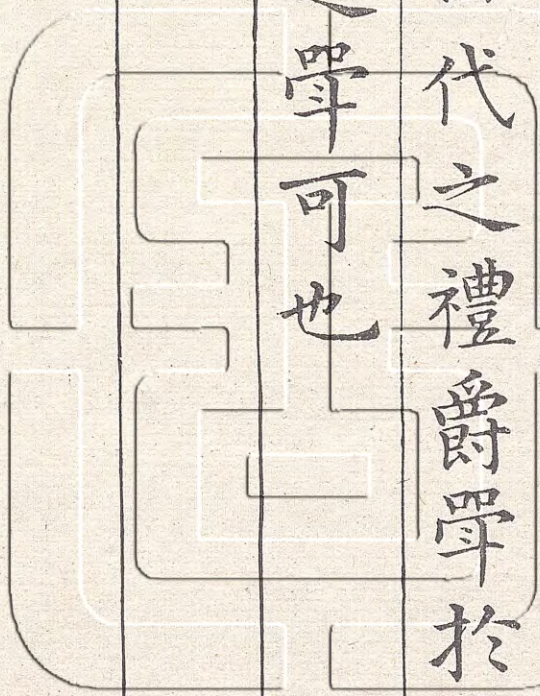 代之禮爵斝於
斝可也